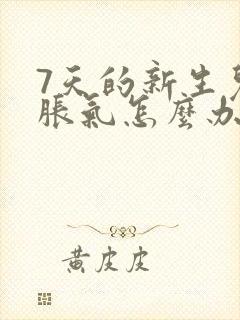 7天的新生兒
脹氣怎麼办
黄皮皮